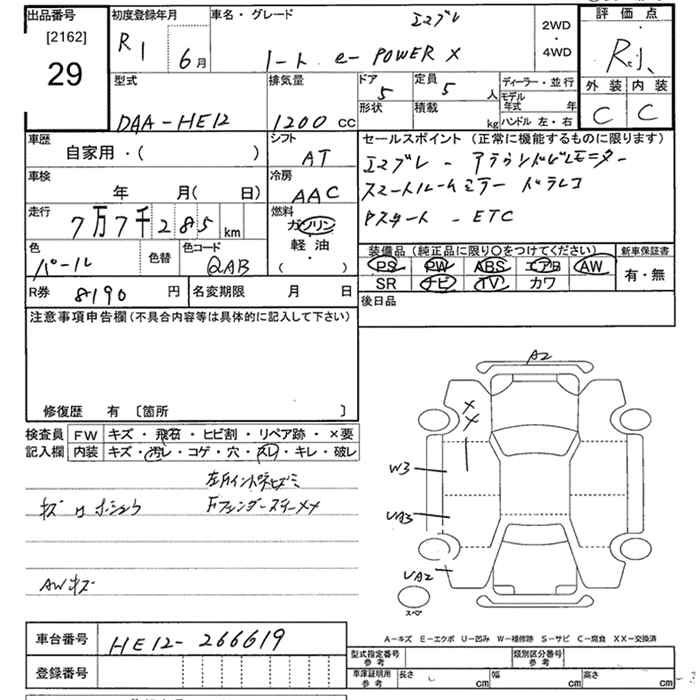 出品番号
[2162]
29
初度登録年月
R1 6月
車名・グレード
エヌブレ
ノート e-POWER X
2WD
・
4WD
評価点
R
外装 内装
C C
型式
DAA-HE12
排気量
1200 cc
ドア
5
定員
5 人
形状
積載
kg
ディーラー・並行
モデル年式 年
ハンドル 左・右
車歴
自家用・( )
シフト
AT
車検
年 月( 日)
冷房
AAC
走行
7万7千285 km
燃料
ガソリン
軽油
・
( )
色
パール
色替
色コード
QAB
セールスポイント (正常に機能するものに限ります)
エヌブレ - アラウンドビューモニター
スマートルームミラー ドラレコ
Pスタート - ETC
装備品 (純正品に限り○をつけてください)
PS PW ABS エアB AW
SR ナビ TV カワ
新車保証書
有・無
R券
8190 円
名変期限 月 日
後日品
注意事項申告欄 (不具合内容等は具体的に記入して下さい)
修復歴 有 〔箇所 〕
検査員
記入欄
FW キズ・飛石・ヒビ割・リペア跡・×要
内装 キズ・汚レ・コゲ・穴・スレ・キレ・破レ
Fフェンダーステーメメ
AWキズ
A2
××
W3
UA3
UA2
スペア
車台番号
HE12-266619
登録番号
A-キズ E-エクボ U-凹み W-補修跡 S-サビ C-腐食 XX-交換済
型式指定番号
参考
類別区分番号
参考
車庫証明用
参考
長さ cm
幅 cm
高さ cm